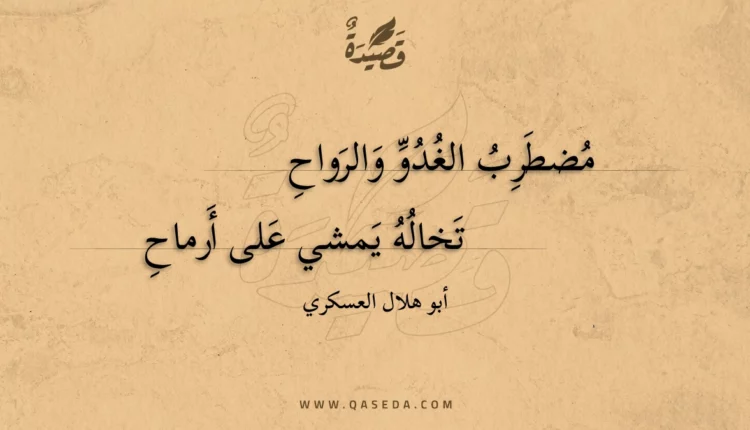 قَصِيْدَةٌ
مُضطَرِبُ الغُدُوِّ وَالرَواحِ
تَخالُهُ يَمشي عَلى أَرماحِ
أبو هلال العسكري
WWW.QASEDA.COM